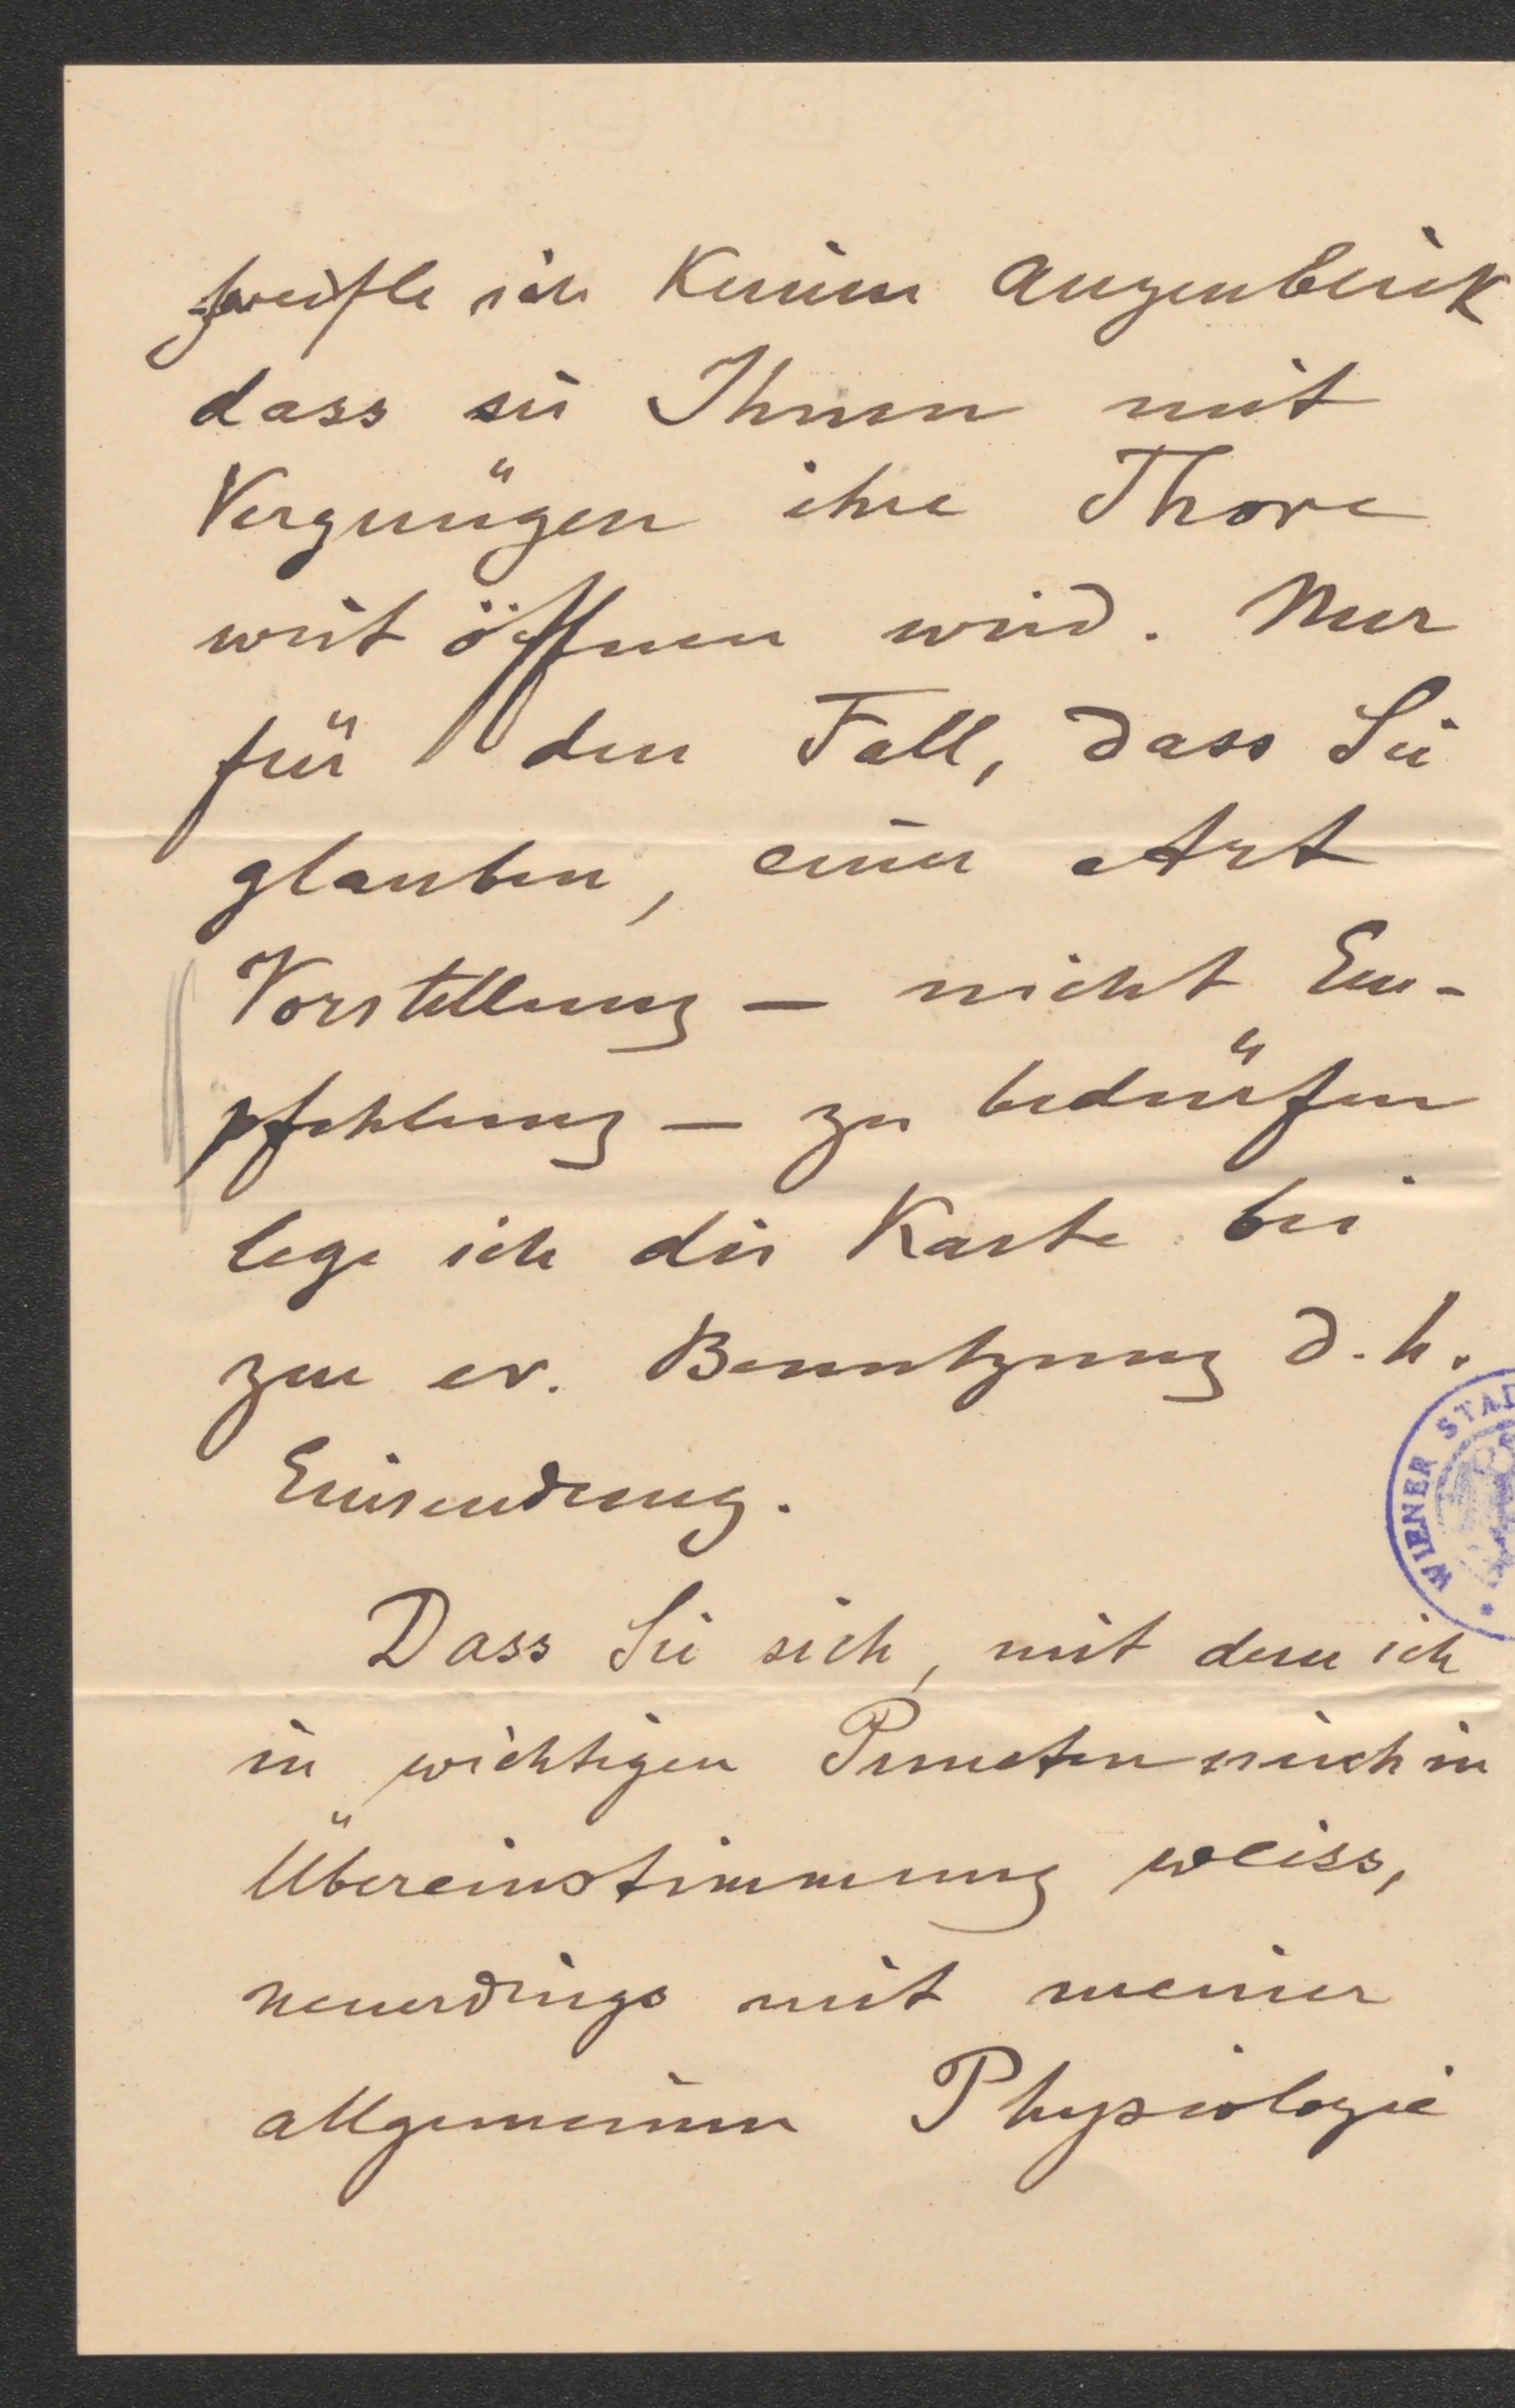 zweifle ich keinen Augenblick
dass sie Ihnen mit
Vergnügen ihre Thore
weit öffnen wird. Nur
für den Fall, dass Sie
glauben, einer Art
Vorstellung — nicht Em-
pfehlung — zu bedürfen
lege ich die Karte bei
zur ev. Benutzung d. h.
Einsendung.
Dass Sie sich, mit dem ich
in wichtigen Puncten mich in
Übereinstimmung weiss,
neuerdings mit meiner
allgemeinen Physiologie
WIENER STAD